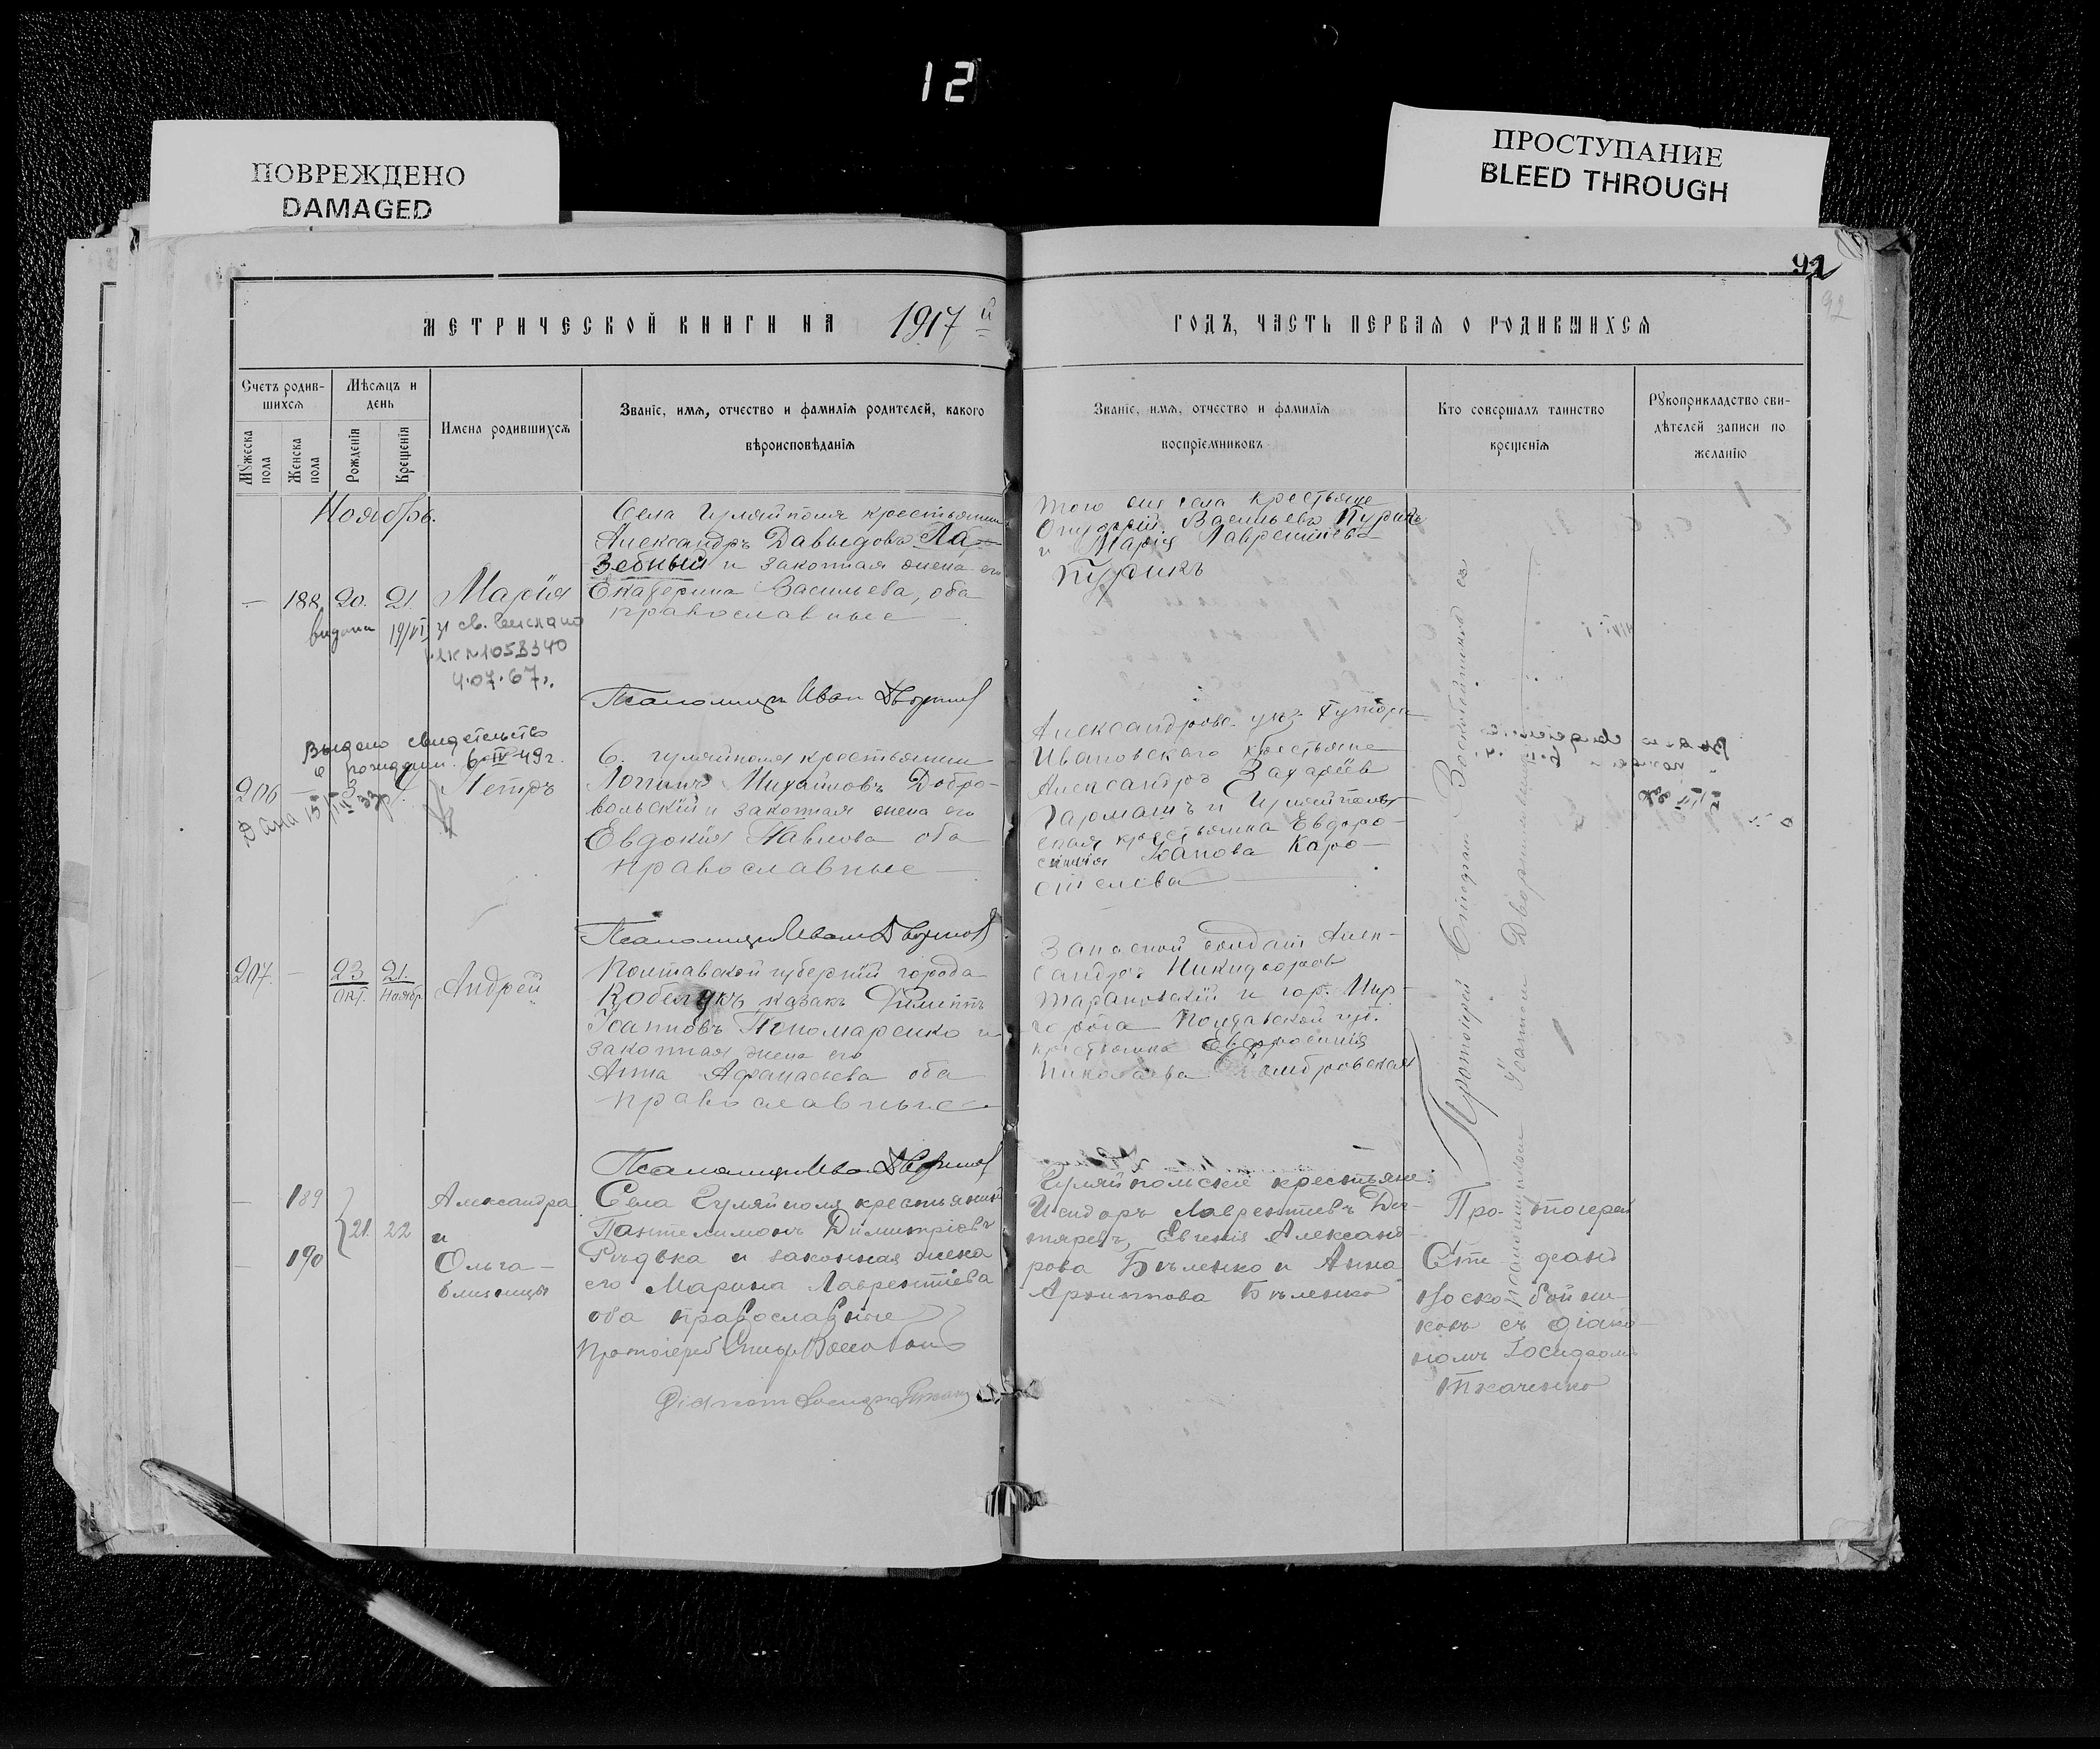 12
ПОВРЕЖДЕНО
DAMAGED
ПРОСТУПАНИЕ
BLEED THROUGH
92
92
МЕТРИЧЕСКОЙ КНИГИ НА 1917 й
ГОДЪ, ЧАСТЬ ПЕРВАЯ О РОДИВШИХСЯ
Счетъ родив-
шихся
Мужеска
пола
Женска
пола
Мѣсяцъ и
день
Рожденія
Крещенія
Имена родившихся
Званіе, имя, отчество и фамилія родителей, какого
вѣроисповѣданія
Званіе, имя, отчество и фамилія
воспріемниковъ
Кто совершалъ таинство
крещенія
Рукоприкладство сви-
дѣтелей записи по
желанію
Ноябрь.
— 188 20. 21. Марія
19/VI
1053340
4.07.67г.
Села Гуляйполя крестьянинъ
Александръ Давыдовъ Ла-
зебный и законная жена его
Екатерина Васильева, оба
православные
Того же села крестьяне
Васильевъ Пурикъ
и Марія Лаврентіева
Пурикъ
Псаломщикъ Иван
Выдано свидетельство
о рождении 6-IV-49г.
206 — 3 4. Петръ
Дана 15/III 33
С. Гуляйполя крестьянинъ
Логинъ Михайловъ Добро-
вольскій и законная жена его
Евдокія Павлова оба
православные
Александров. уѣз.
Ивановскаго крестьяне
Александръ Захаріевъ
Гармашъ и Гуляйполь-
ская крестьянка Евфро-
синія Іоанова Каро-
стелева
Псаломщикъ Иван
207. — 23 21. Андрей
Окт. Ноябр.
Полтавской губерніи города
Кобелякъ казакъ Филиппъ
Іоанновъ Пономаренко и
законная жена его
Анна Афанасьева оба
православные
Запасной солдатъ Алек-
сандръ Никифоровъ
Тарановскій и гор. Мир-
города Полтавской губ.
крестьянка Евфросинія
Николаева
Псаломщикъ Иван
— 189 Александра
21. 22 и
— 190 Ольга —
близницы
Села Гуляйполя крестьянинъ
Пантелимонъ Димитріевъ
Рѣдвка и законная жена
его Марина Лаврентіева
оба православные
Протоіерей
Діаконъ
Гуляйпольскіе крестьяне:
Исидоръ Лаврентіевъ Дег-
тяревъ, Евгенія Александ-
рова Бѣленко и Анна
Архиппова Бѣленко
Протоіерей Стефанъ Воскобойниковъ съ
псаломщикомъ Іоанномъ
Протоіерей
Стефанъ
Воскобойни-
ковъ съ діако-
номъ Іосифомъ
Ткаченко